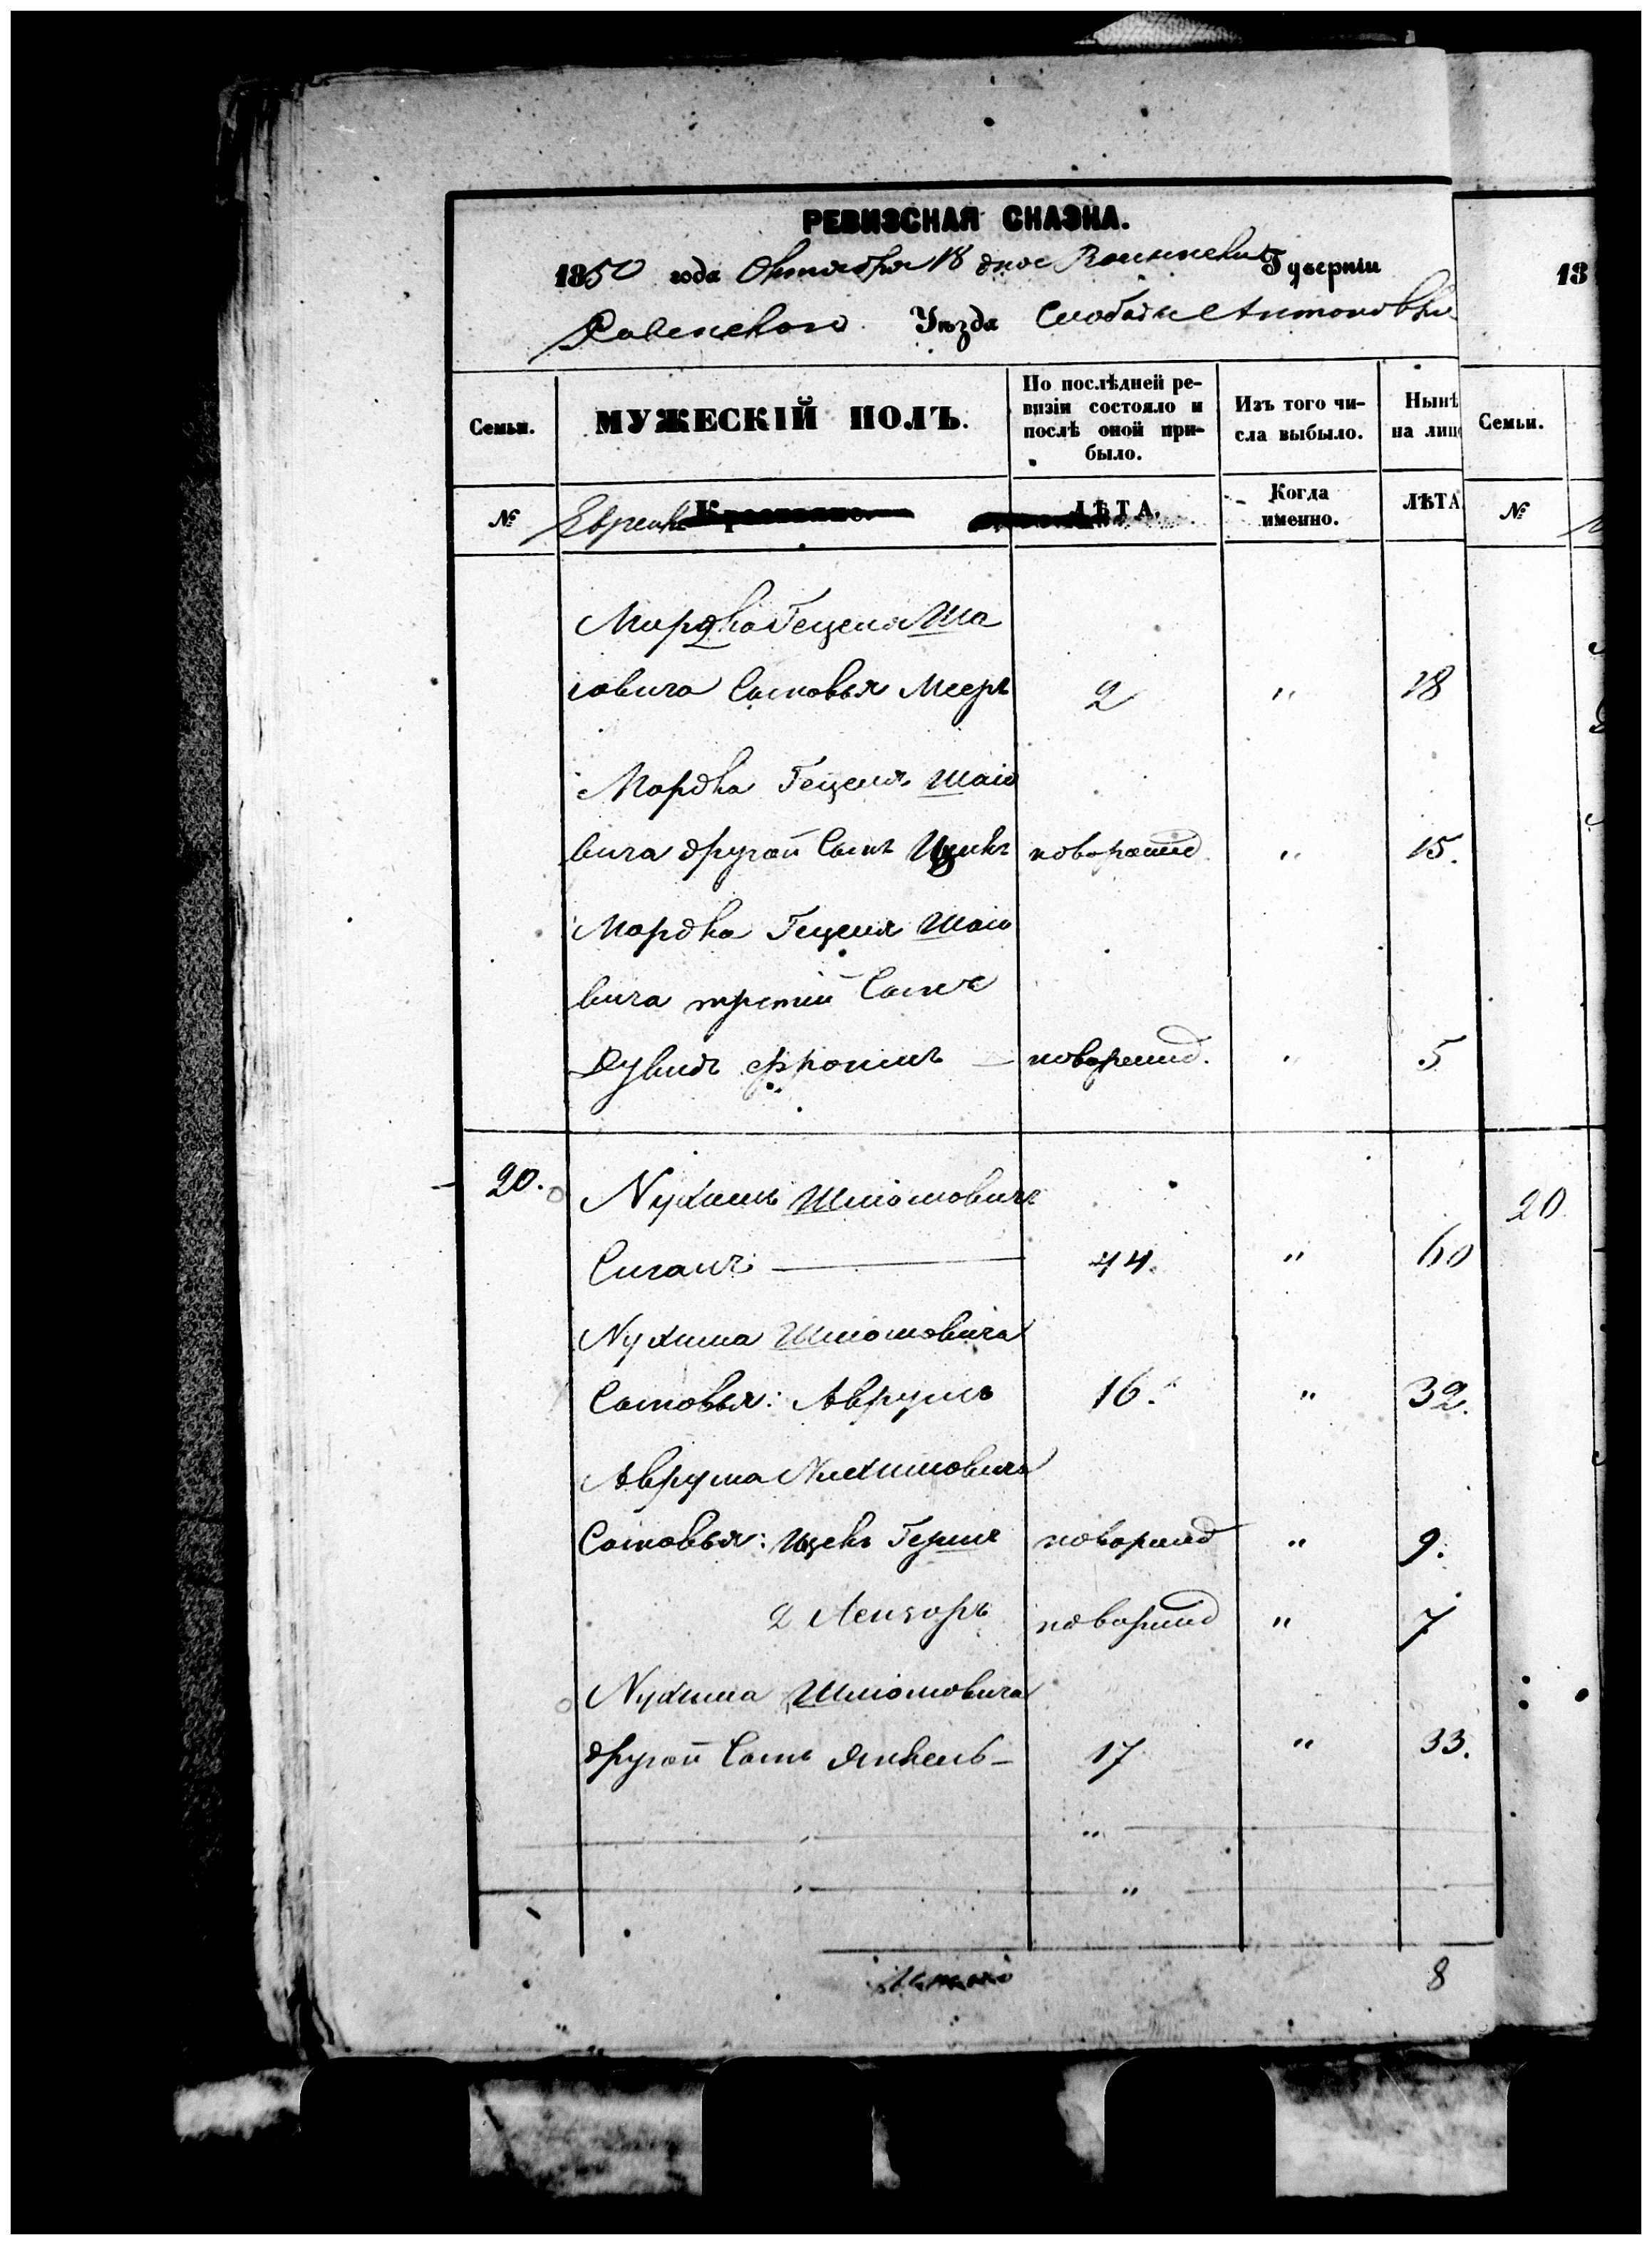 РЕВИЗСКАЯ СКАЗКА.
1850 года Октября 18 дня Волынской Губерніи
Ровенского Уѣзда Слободы Антоновки
18
Семьи.
МУЖЕСКІЙ ПОЛЪ.
По послѣдней ре-
визіи состояло и
послѣ оной при-
было.
Изъ того чи-
сла выбыло.
Нынѣ
на лиц
Семьи.
№
Евреи
ЛѢТА.
Когда
именно.
ЛѢТА
№
Мордка Гецеля Ша
іовича Сыновья Мееръ 2 " 18
Мордка Гецеля Шаіо
вича другой Сынъ Ицикъ новорожд. " 15.
Мордка Гецеля Шаіо
вича третій Сынъ
Дувидъ Фроимъ новорожд. " 5
20. Нухимъ Шліомовичъ
20
Сиганъ 44. " 60
Нухима Шліомовича
Сыновья: Аврумъ 16. " 32.
Аврума Нухимовича
Сыновья: Ицекъ Герша новорожд " 9.
2 Лейзоръ новорожд " 7
Нухима Шліомовича
другой Сынъ Янкель 17 " 33.
"
"
8